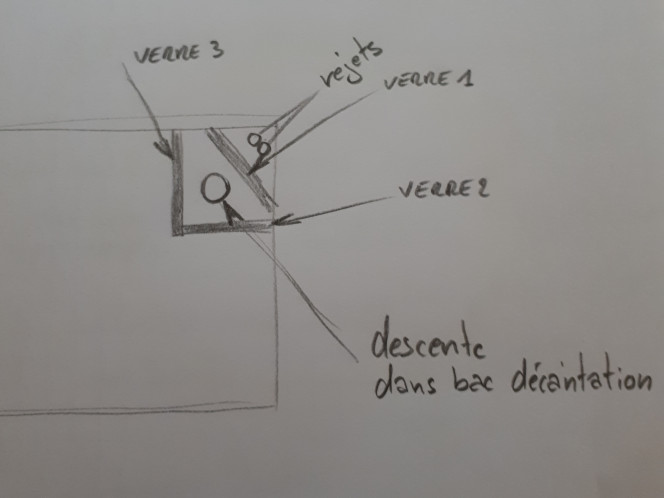 VERRE 3
rejets
VERRE 1
VERRE 2
descente
dans bac décantation